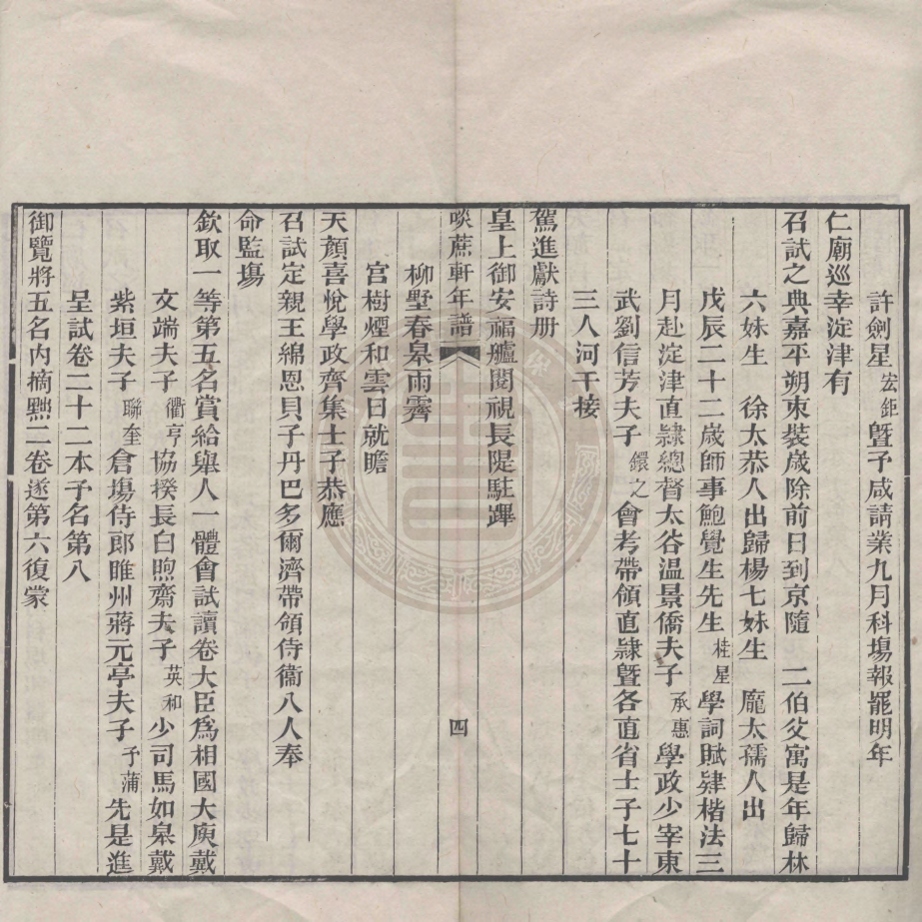 許劍星宏鉅曁予咸請業九月科塲報罷明年
仁廟巡幸淀津有
召試之典嘉平朔束裝歲除前日到京隨 二伯父寓是年歸林
六妹生 徐太恭人出歸楊七妹生 龐太孺人出
戊辰二十二歲師事鮑覺生先生桂星學詞賦肄楷法三
月赴淀津直隷總督太谷温景僑夫子承惠學政少宰東
武劉信芳夫子鐶之會考帶領直隷曁各直省士子七十
三人河干接
駕進獻詩册
皇上御安福艫閱視長隄駐蹕
啖蔗軒年譜 四
柳墅春臯雨霽
宫樹煙和雲日就瞻
天顏喜悅學政齊集士子恭應
召試定親王綿恩貝子丹巴多爾濟帶領侍衞八人奉
命監塲
欽取一等第五名賞給舉人一體會試讀卷大臣爲相國大庾戴
文端夫子衢亨協揆長白煦齋夫子英和少司馬如臯戴
紫垣夫子聯奎倉塲侍郎睢州蔣元亭夫子予蒲先是進
呈試卷二十二本予名第八
御覽將五名内摘㸃二卷遂第六復蒙